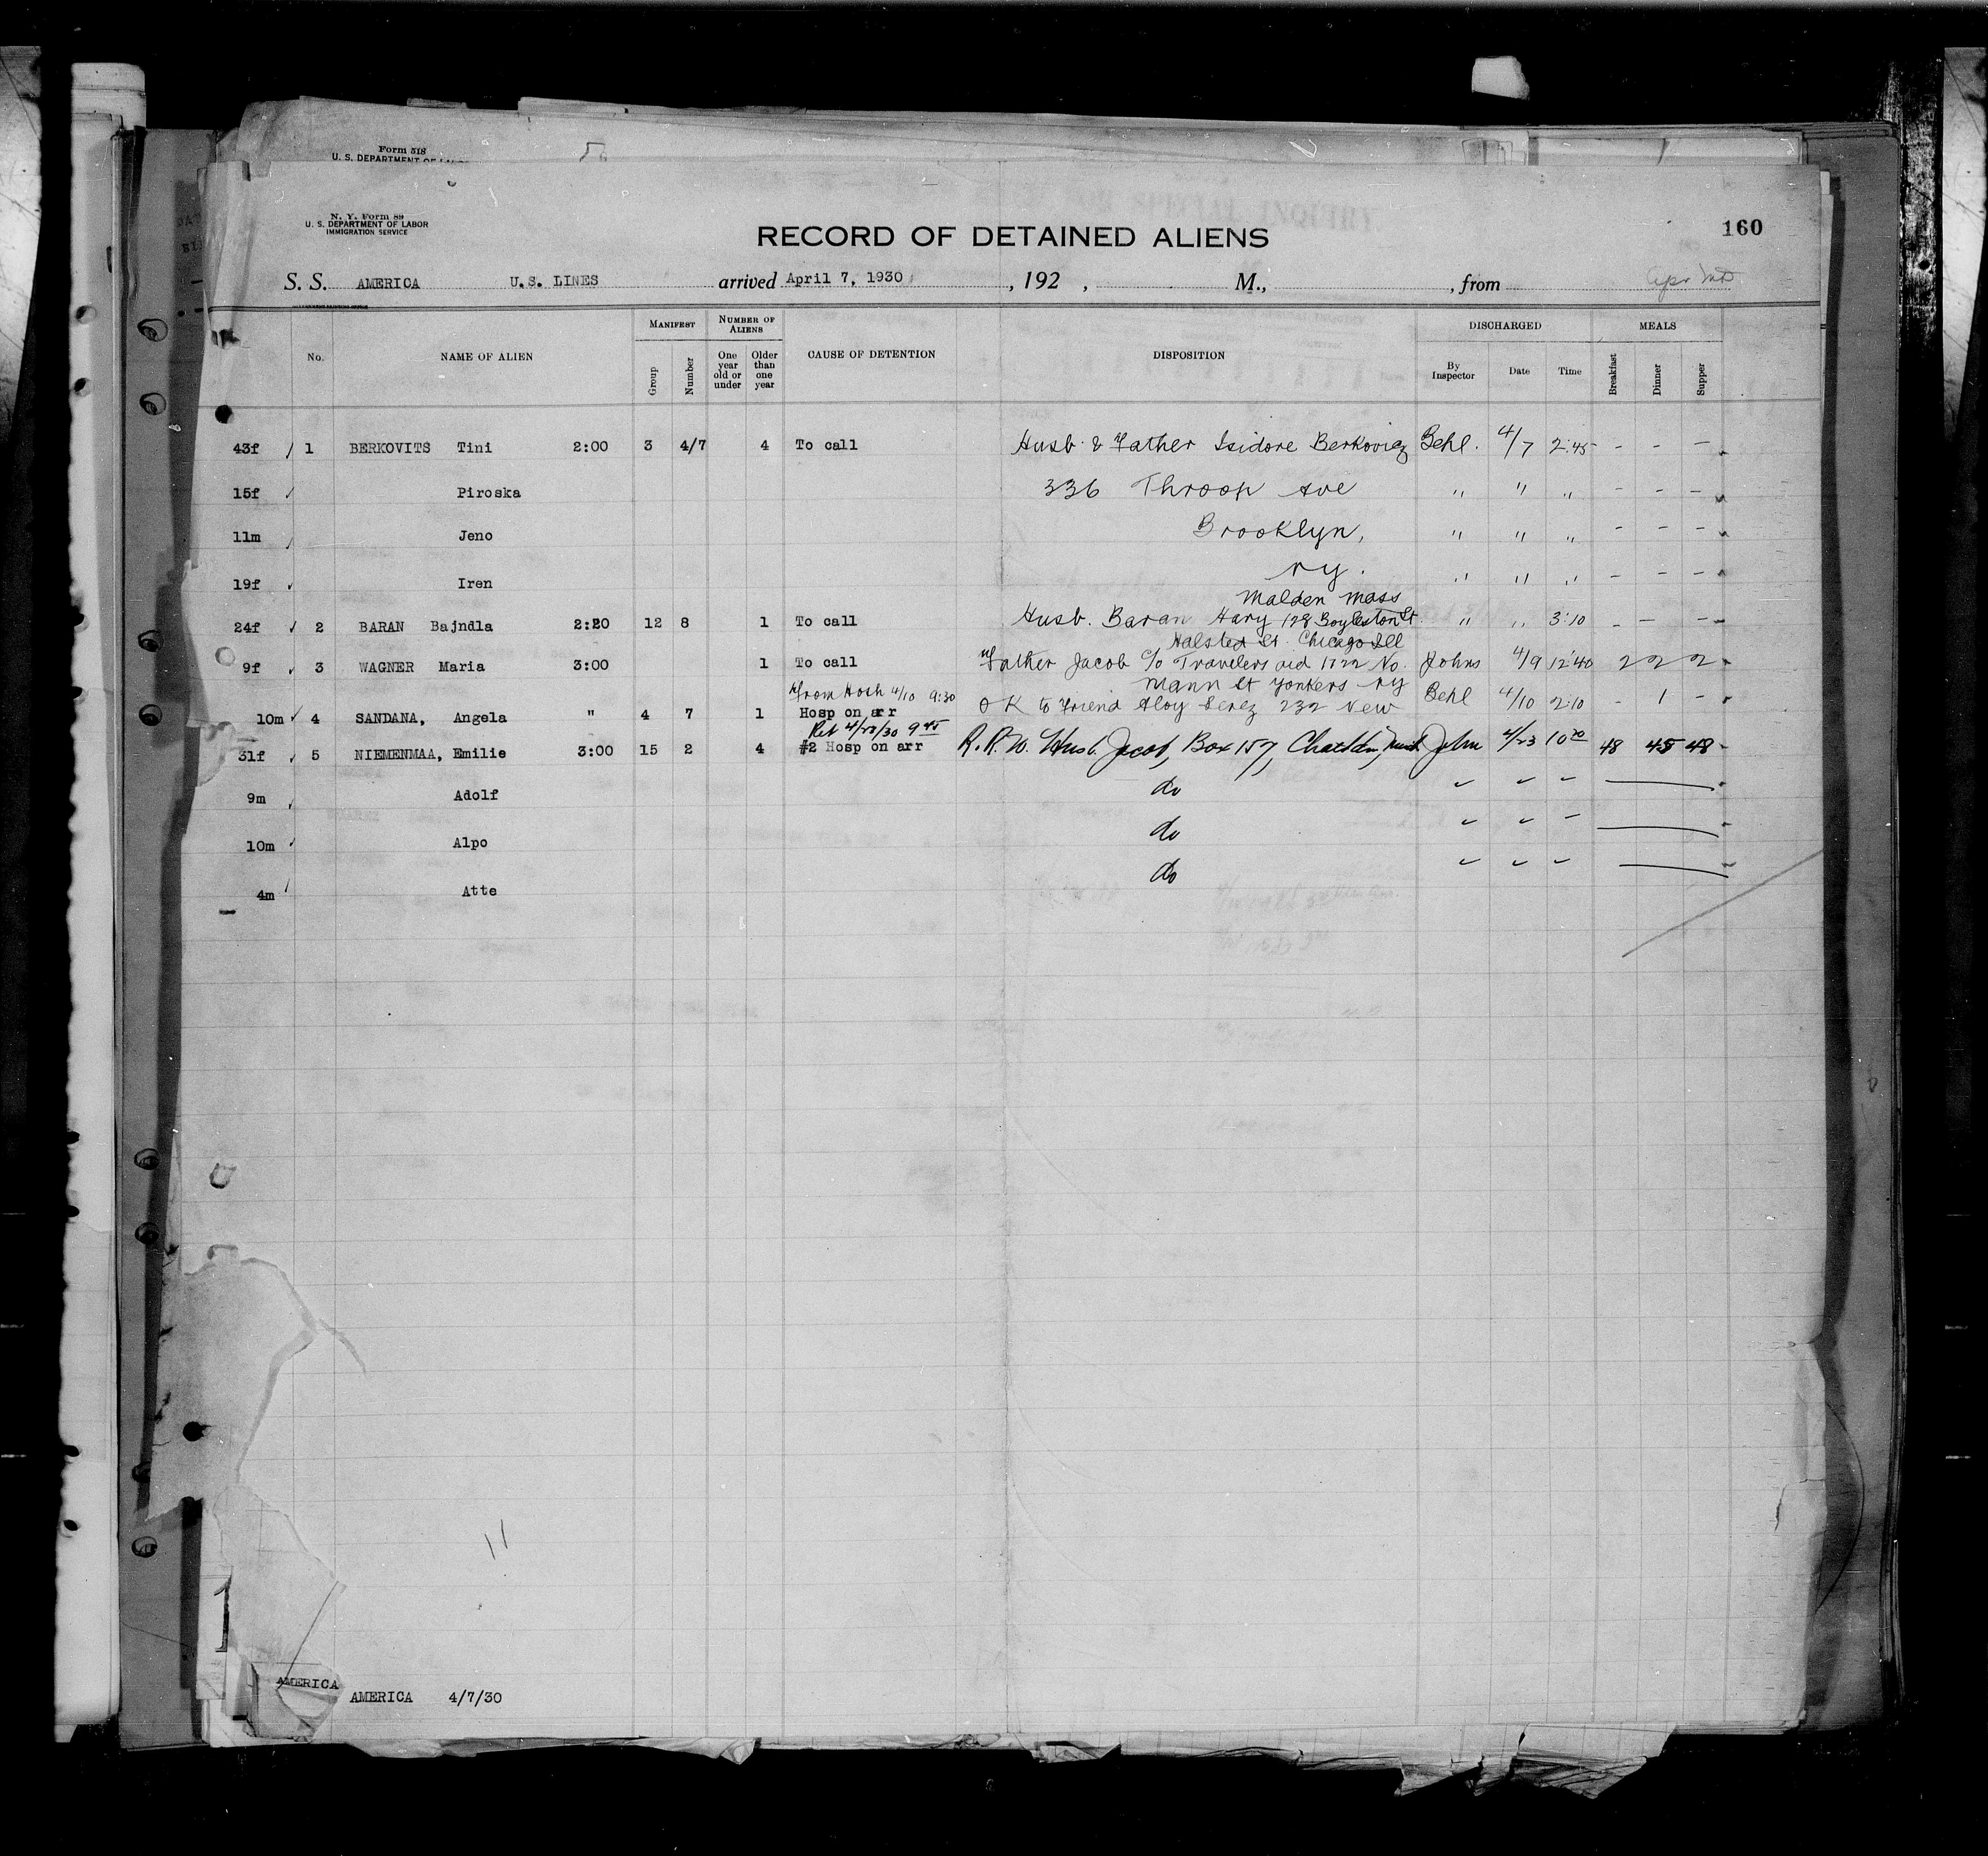 Form 518
U. S. DEPARTMENT OF LABOR
N. Y. Form 89
U. S. DEPARTMENT OF LABOR
IMMIGRATION SERVICE
RECORD OF DETAINED ALIENS
160
S. S. AMERICA U.S. LINES arrived April 7, 1930 , 192 , M., , from
No. NAME OF ALIEN MANIFEST Group Number NUMBER OF ALIENS One year old or under Older than one year CAUSE OF DETENTION DISPOSITION DISCHARGED By Inspector Date Time MEALS Breakfast Dinner Supper
43f 1 BERKOVITS Tini 2:00 3 4/7 4 To call Husb & Father Isidore Berkovicz Behl. 4/7 2:45 - - -
15f Piroska 336 Throop Ave " " " - - -
11m Jeno Brooklyn, " " " - - -
19f Iren ny. " " " - - -
Malden Mass
24f 2 BARAN Bajndla 2:20 12 8 1 To call Husb. Baran Hary 128 Boylston St. " " 3:10 - - -
Halsted St. Chicago Ill
9f 3 WAGNER Maria 3:00 1 To call Father Jacob c/o Travelers aid 1722 No. Johns 4/9 12:40 2 2 2
From Hosh 4/10 9:30 Mann St Yonkers ny
10m 4 SANDANA, Angela " 4 7 1 Hosp on arr OK to Friend Aloy 232 New Behl 4/10 2:10 - 1 -
Ret 4/23/30 9 45
31f 5 NIEMENMAA, Emilie 3:00 15 2 4 #2 Hosp on arr R.R.W. Husb. Jacob, Box 157, John 4/23 10 20 48 45 48
9m Adolf do
10m Alpo do
4m Atte do
11
AMERICA
AMERICA 4/7/30